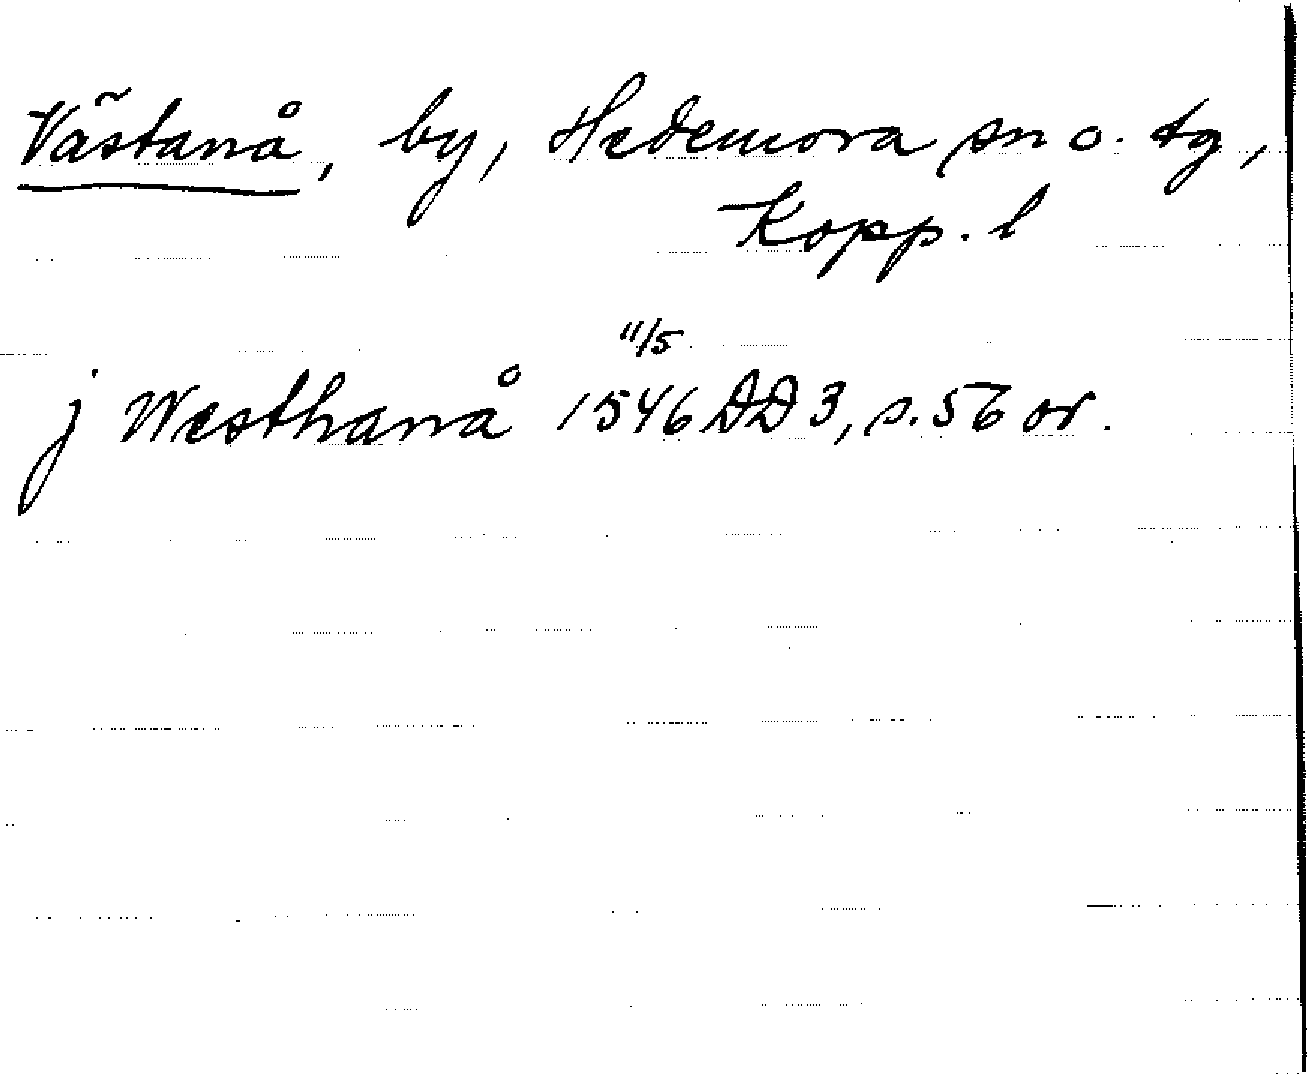 Västanå, by, Hedemora sn o. tg,
Kopp. l
11/5
j Westhanå 1546 DD 3, s. 56 or.